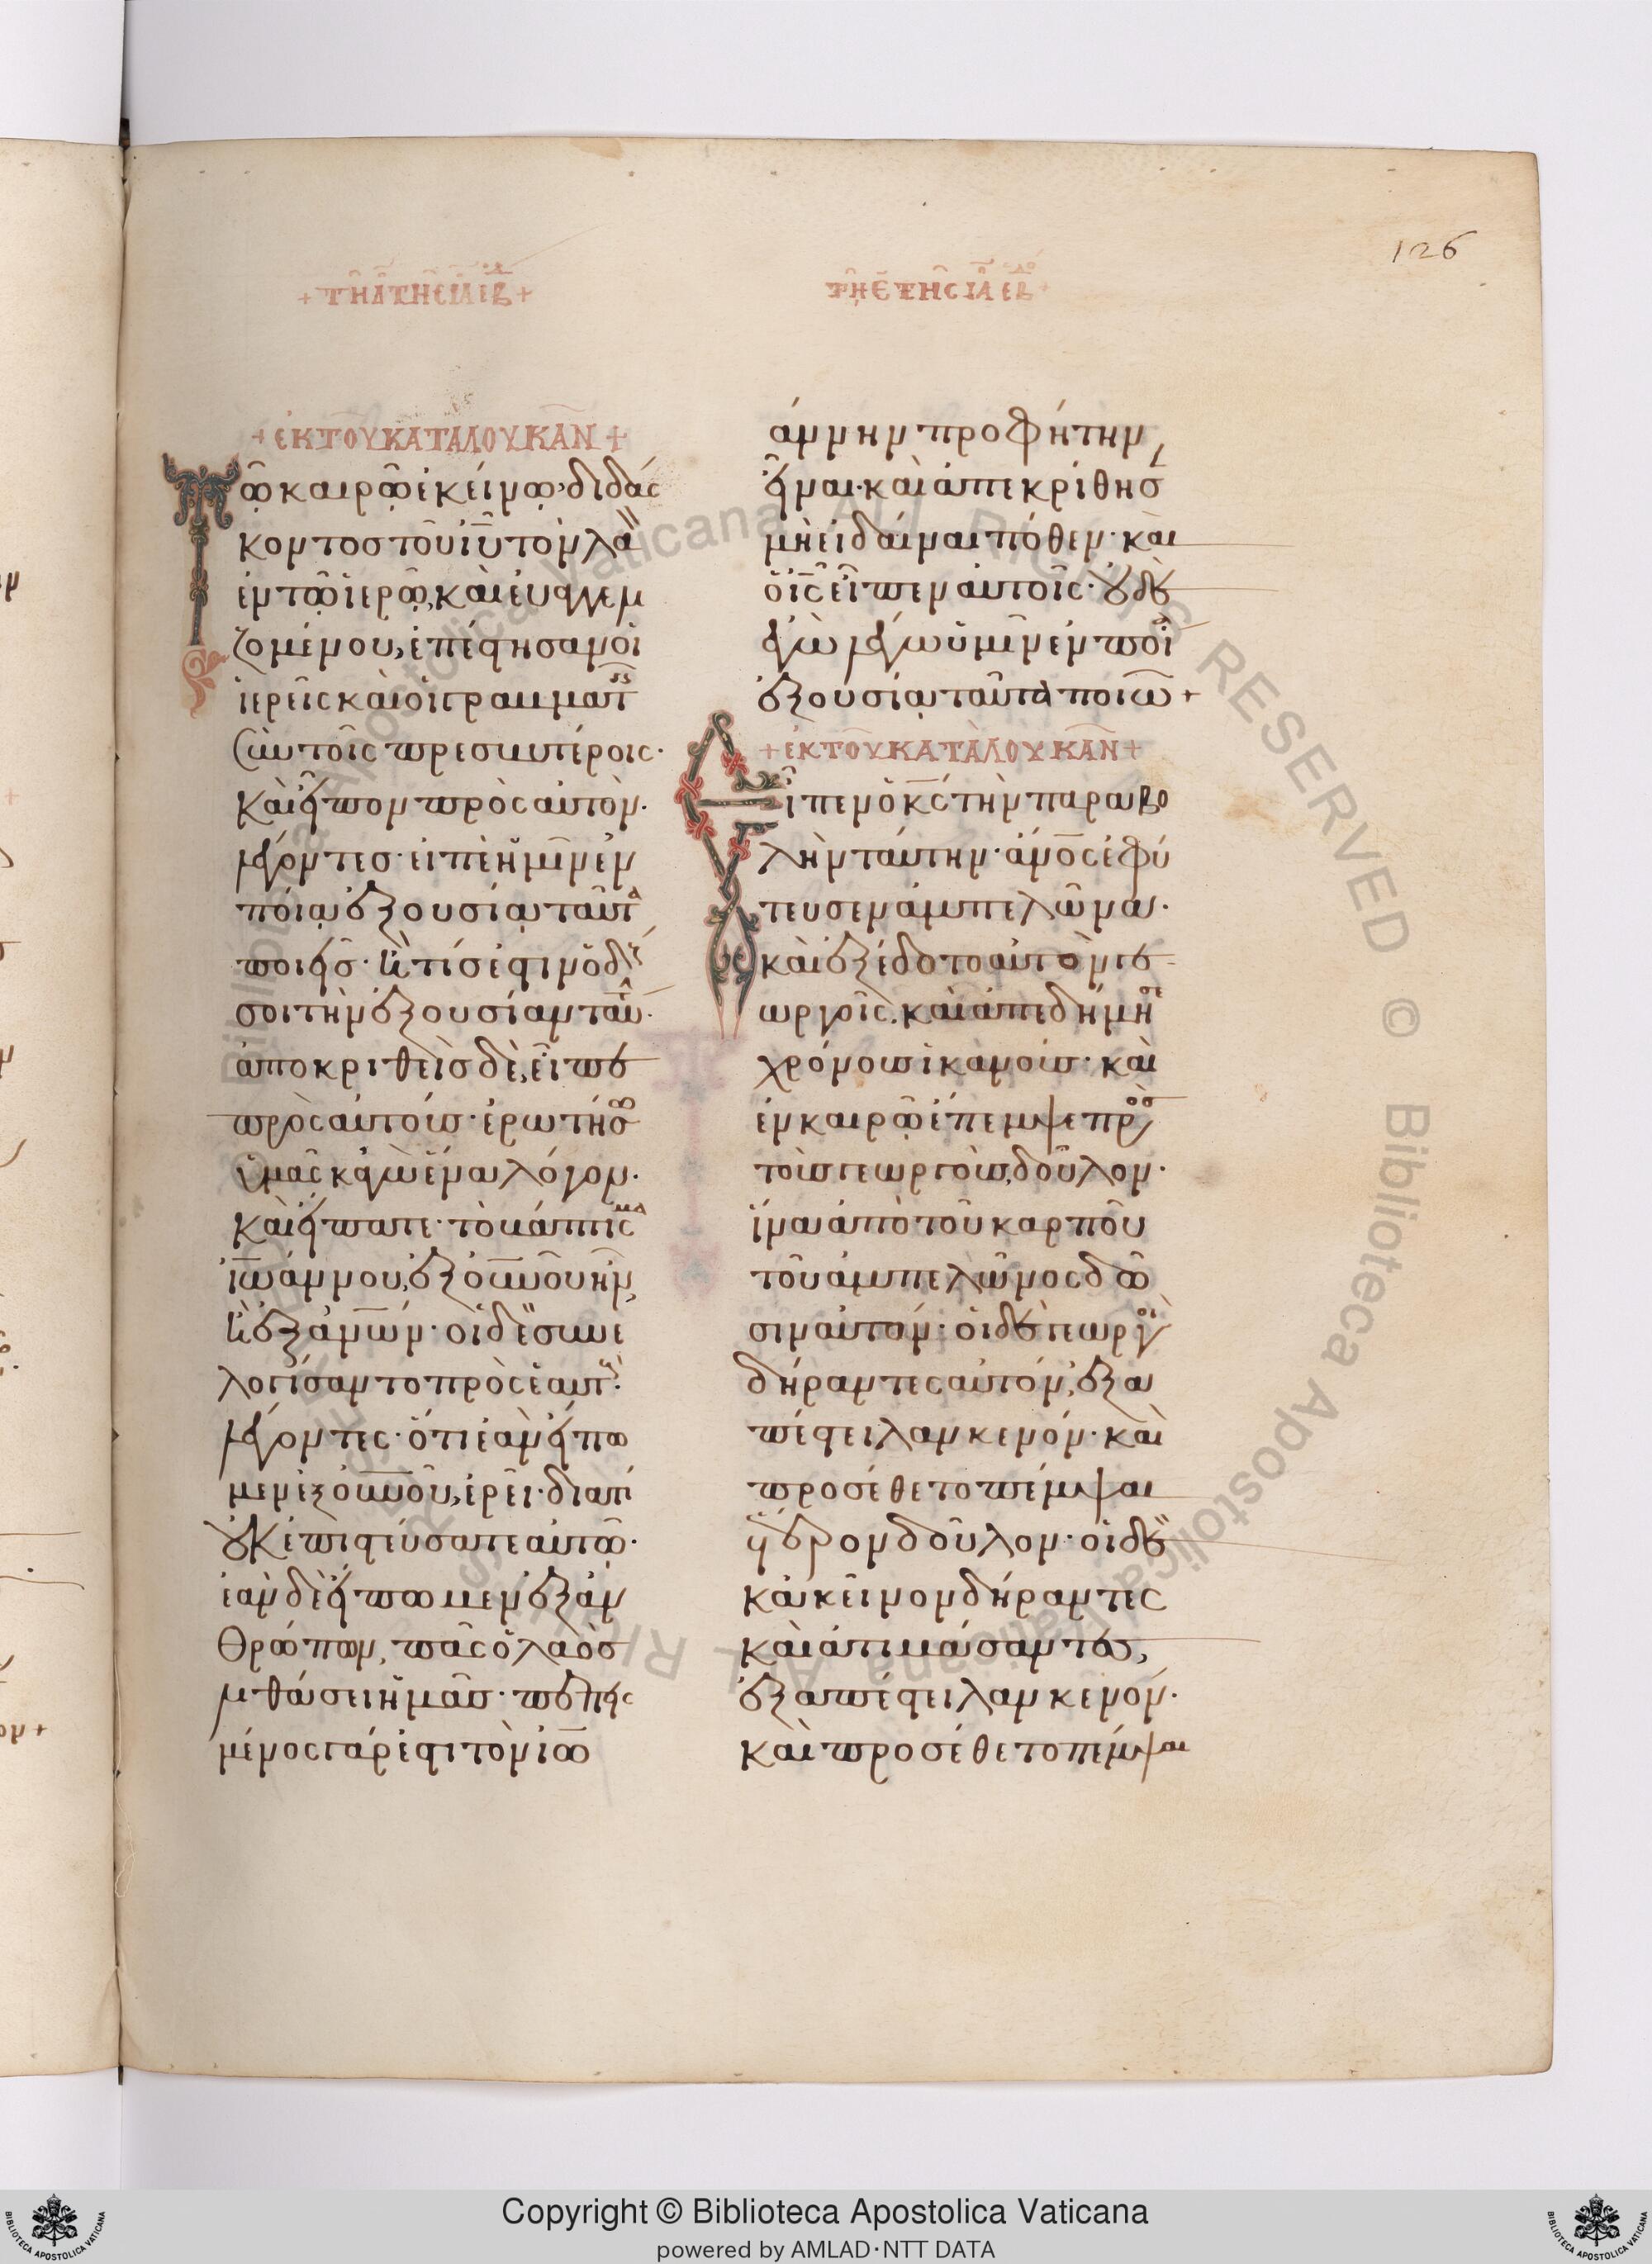 126
+ τῆ δ τῆς ια εβδ +
τῆ ε τῆς ια εβδ +
+ ἐκ τοῦ κατὰ λουκᾶν +
Τῶ καιρῶ ἐκείνω διδάσ
κοντος τοῦ ιυ τὸν λα
ἐν τῶ ἱερῶ, καὶ εὐαγγελι
ζομένου, ἐπέστησαν οἱ
ἱερεῖς καὶ οἱ γραμματεῖς
σὺν τοῖς πρεσβυτέροις·
καὶ εἶπον πρὸς αὐτὸν·
λέγοντεσ· εἰπὲ ἡμῖν ἐν
ποία ἐξουσία ταῦτα
ποιεῖσ· ἢ τίσ ἐστιν ὁ δούς
σοι τὴν ἐξουσίαν ταύτην·
ἀποκριθεὶσ δὲ, εἶπε
πρὸς αὐτούσ· ἐρωτήσω
ὑμᾶς κἀγὼ ἕνα λόγον·
καὶ εἴπατε· τὸ βάπτισμα
ἰωάννου, ἐξ οὐνου ἦν,
ἢ ἐξ ἀνων· οἱ δὲ συνε
λογίσαντο πρὸς ἑαυτοὺς·
λέγοντες· ὅτι ἐὰν εἴπω
μεν ἐξ οὐνοῦ, ἐρεῖ· διατί
οὐκ ἐπιστεύσατε αὐτῶ·
ἐὰν δὲ εἴπωμεν ἐξ ἀν
θρώπων, πᾶς ὁ λαὸσ
λιθάσει ἡμᾶσ· πεπεισ
μένος γάρ ἐστι τὸν ἰω
άννην προφήτην
εἶναι· καὶ ἀπεκρίθησ
μὴ εἰδέναι πόθεν· καὶ
ὁ ις εἶπεν αὐτοῖς· οὐδὲ
ἐγὼ λέγω ὑμῖν ἐν ποία
ἐξουσία ταῦτα ποιῶ +
+ ἐκ τοῦ κατὰ λουκᾶν +
Εἶπεν ὁ κς τὴν παραβο
λὴν ταύτην· ἄνος ἐφύ
τευσεν ἀμπελῶνα·
καὶ ἐξέδοτο αὐτὸν γε
ωργοῖς· καὶ ἀπεδήμησε
χρόνουσ ἱκανούσ· καὶ
ἐν καιρῶ ἔπεμψε πρὸσ
τοὺσ γεωργοὺσ, δοῦλον·
ἵνα ἀπὸ τοῦ καρποῦ
τοῦ ἀμπελῶνος δω
σιν αὐτῶ· οἱ δὲ γεωργοὶ
δήραντες αὐτόν, ἐξα
πέστειλαν κενόν· καὶ
προσέθετο πέμψαι
ἕτερον δοῦλον· οἱ δὲ
κἀκεῖνον δήραντες
καὶ ἀτιμάσαντες,
ἐξαπέστειλαν κενόν·
καὶ προσέθετο πέμψαι
Copyright © Biblioteca Apostolica Vaticana
powered by AMLAD·NTT DATA